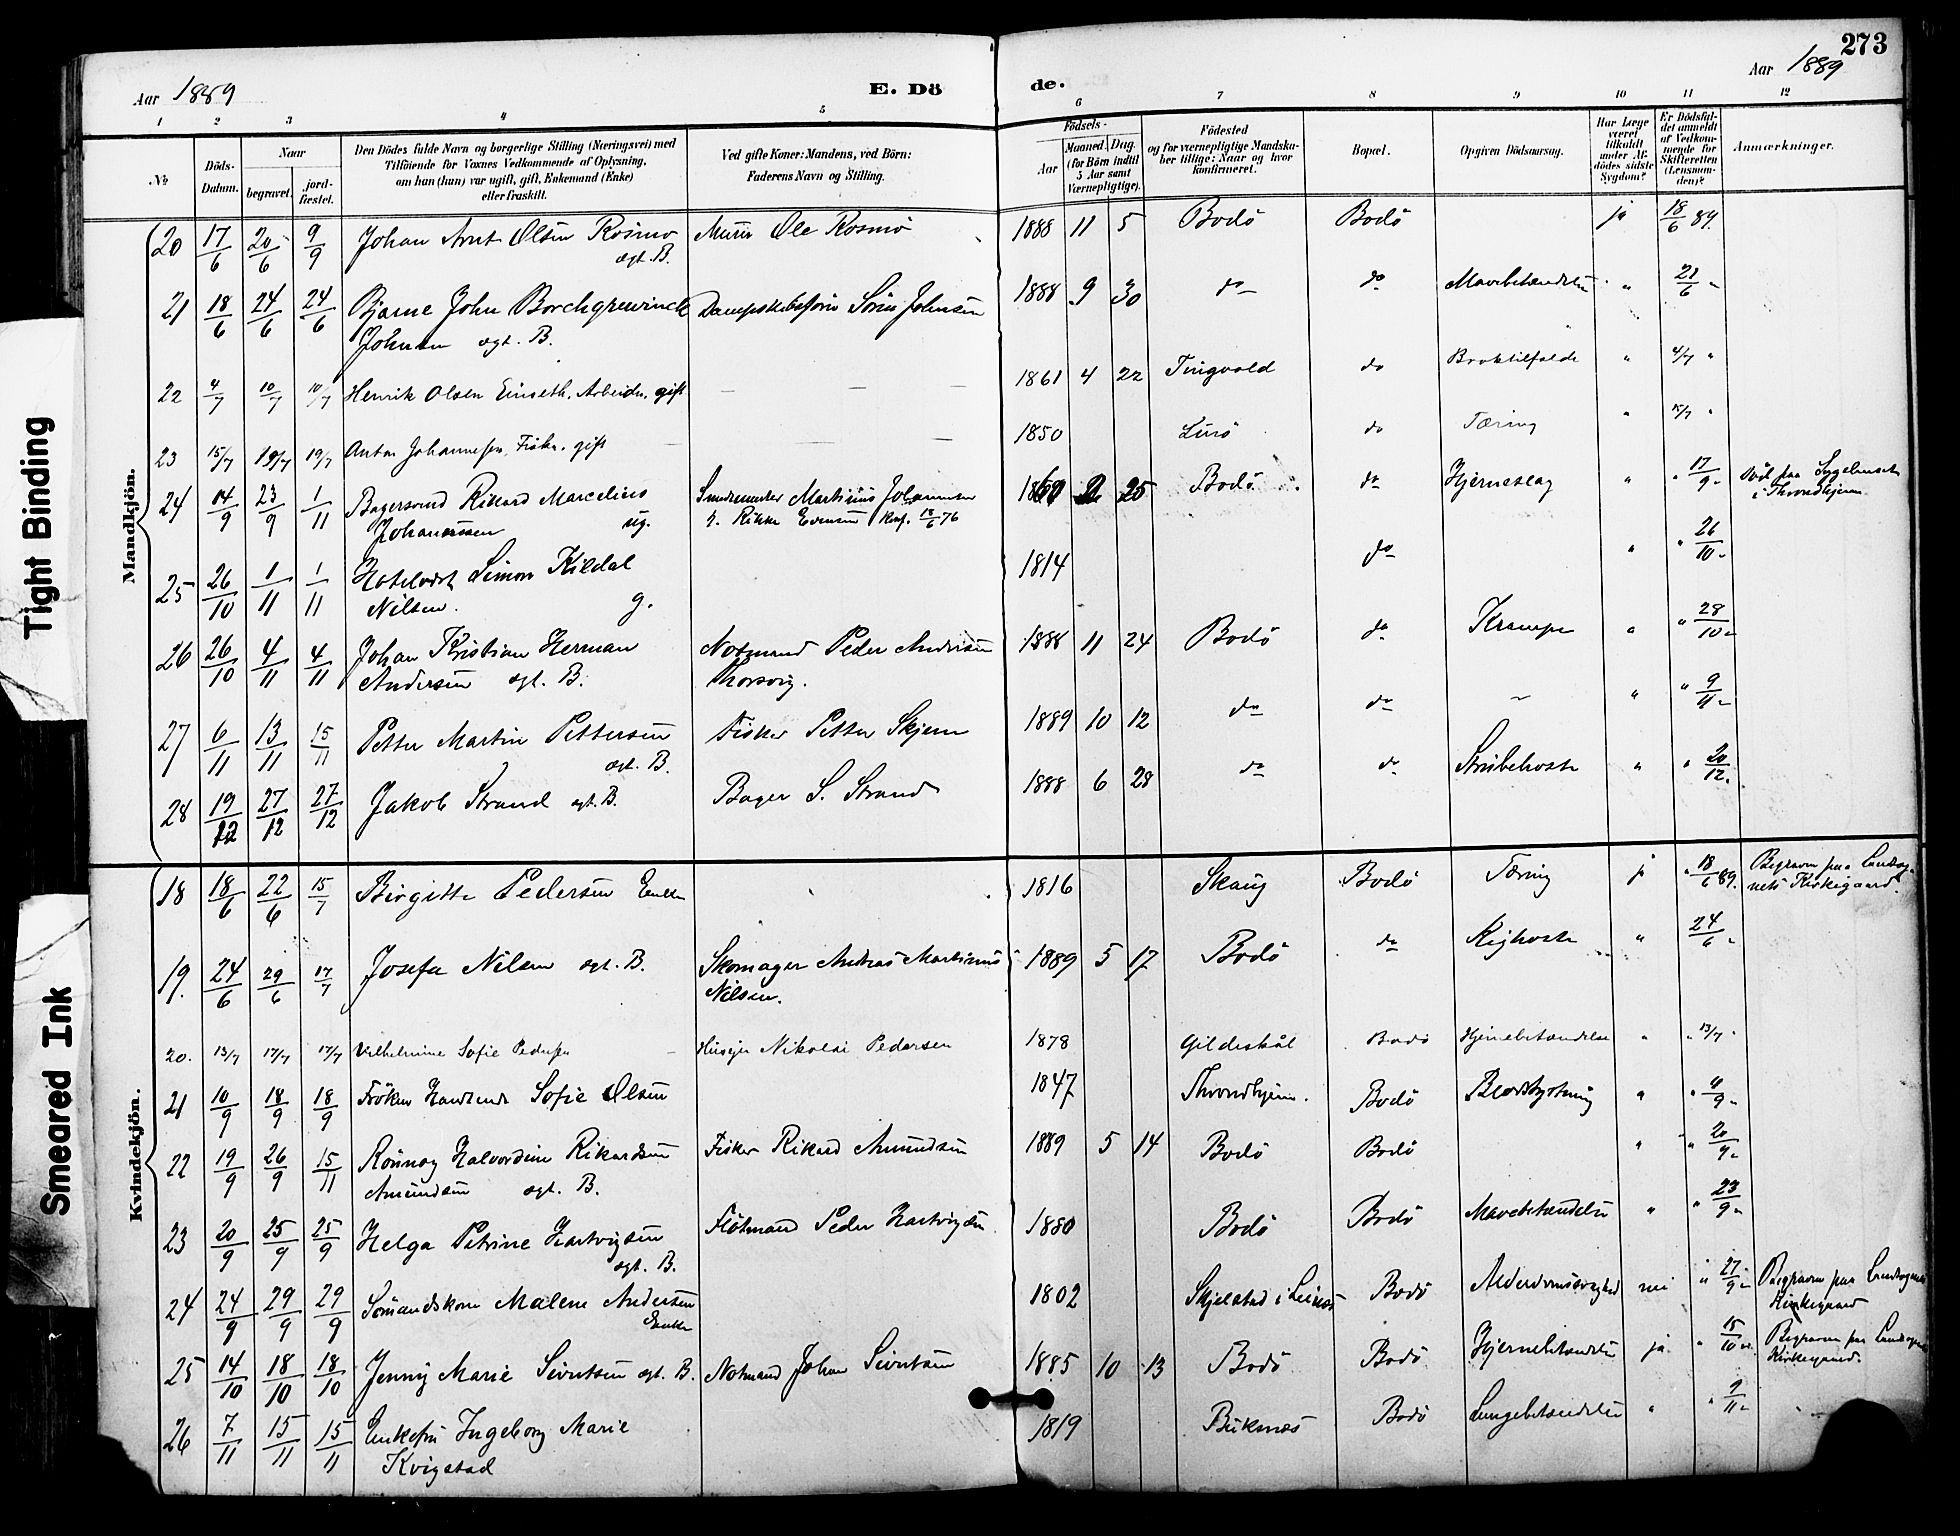 273
Aar 1889
E. Dö
de.
Aar 1889
1 2 3 4 5 6 7 8 9 10 11 12
No
Döds-
Datum.
Naar
begravet.
jord-
fæstet.
Den Dödes fulde Navn og borgerlige Stilling (Næringsvei) med
Tilföiende for Voxnes Vedkommende af Oplysning,
om han (hun) var ugift, gift, Enkemand (Enke)
eller fraskilt.
Ved gifte Koner: Mandens, ved Börn:
Faderens Navn og Stilling.
Födsels-
Aar
Maaned Dag.
(for Börn indtil
5 Aar samt
Værnepligtige).
Födested
og for værnepligtige Mandska-
ber tillige: Naar og hvor
konfirmeret.
Bopæl.
Opgiven Dödsaarsag.
Har Læge
været
tilkaldt
under Af-
dödes sidste
Sygdom?
Er Dödsfal-
det anmeldt
af Vedkom-
mende for
Skifteretten
(Lensman-
den)?
Anmærkninger.
Mandkjön.
20 17/6 20/6 9/9 Johan Arnt Olsen Rösmo Murer Ole Rosmo 1888 11 5 Bodö Bodö ja 18/6 89.
ægt. B.
21 18/6 24/6 24/6 Bjarne John Borchgrewinck Dampskibsförer Sören Johnsen 1888 9 30 do do Mavebetændelse " 21/6 "
Johnsen ægt. B.
22 4/7 10/7 10/7 Henrik Olsen Einseth, Arbeider, gift — — — 1861 4 22 Tingvold do Broktilfælde " 4/7 "
23 15/7 19/7 19/7 Anton Johannesen, Fisker, gift — — — 1850 Lurö do Tæring " 15/7 "
24 14/9 23/9 1/11 Bagersvend Rikard Marcelius Smedemester Martinus Johannesen 25 Bodö do Hjerneslag " " 17/9 " Död paa Sygehuset
Johannessen ug. h. Rikke Evensen Konf. 18/6 76 i Throndhjem
25 26/10 1/11 1/11 Hotelvært Simon Kildal 1814 do " " 26/10 "
Nilsen. g.
26 26/10 4/11 4/11 Johan Kristian Herman Notmand Peder Andersen 1888 11 24 Bodö do Krampe " " 28/10 "
Andersen ægt. B. Thorsvig.
27 6/11 13/11 15/11 Petter Martin Pettersen Fisker Petter Skjem 1889 10 12 do do — " " 9/11 "
ægt. B.
28 19/12 27/12 27/12 Jakob Strand ægt. B. Bager S. Strand 1888 6 28 do do Strubehoste " " 20/12 "
Kvindekjön.
18 18/6 22/6 15/7 Birgitte Pedersen Enke 1816 Skaug Bodö Tæring ja " 18/6 89. Begraven paa Landsog-
nets Kirkegaard.
19. 24/6 29/6 17/7 Josefa Nilsen ægt. B. Skomager Andreas Martinus 1889 5 17 Bodö do Kighoste " 24/6 "
Nilsen.
20. 13/7 17/7 17/7 Vilhelmine Sofie Pedersen — Huseier Nikolai Pedersen 1878 Gildeskål Bodö Hjernebetændelse " " 13/7 "
21 10/9 18/9 18/9 Fröken Sofie Olsen 1847 Throndhjem. Bodö Blodstyrtning " " 9 "
22 19/9 26/9 15/11 Rönnog Halvordine Rikardsen Fisker Rikard Amundsen 1889 5 14 Bodö Bodö " " 20/9 "
Amundsen ægt. B.
23 20/9 25/9 25/9 Helga Petrine Hartvigsen Flötmand Peder Hartvigsen 1880 Bodö Bodö Mavebetændelse " " 23/9 "
ægt. B.
24 24/9 29/9 29/9 Sömandskone Malene Andersen 1802 Skjelstad i Bodö Alderdomssvaghed nei " 27/9 " Begraven paa Landsognets
Enke Kirkegaard
25 14/10 18/10 18/10 Jenny Marie Sivertsen ægt. B. Notmand Johan Sivertsen 1885 10 13 Bodö Bodö Hjernebetændelse ja " 15/10 " Begraven paa Landsognets
Kirkegaard.
26 7/11 15/11 15/11 Enkefru Ingeborg Marie 1819 Buksnæs Bodö Lungebetændelse " " 9/11 "
Kvigstad
Tight Binding
Smeared Ink